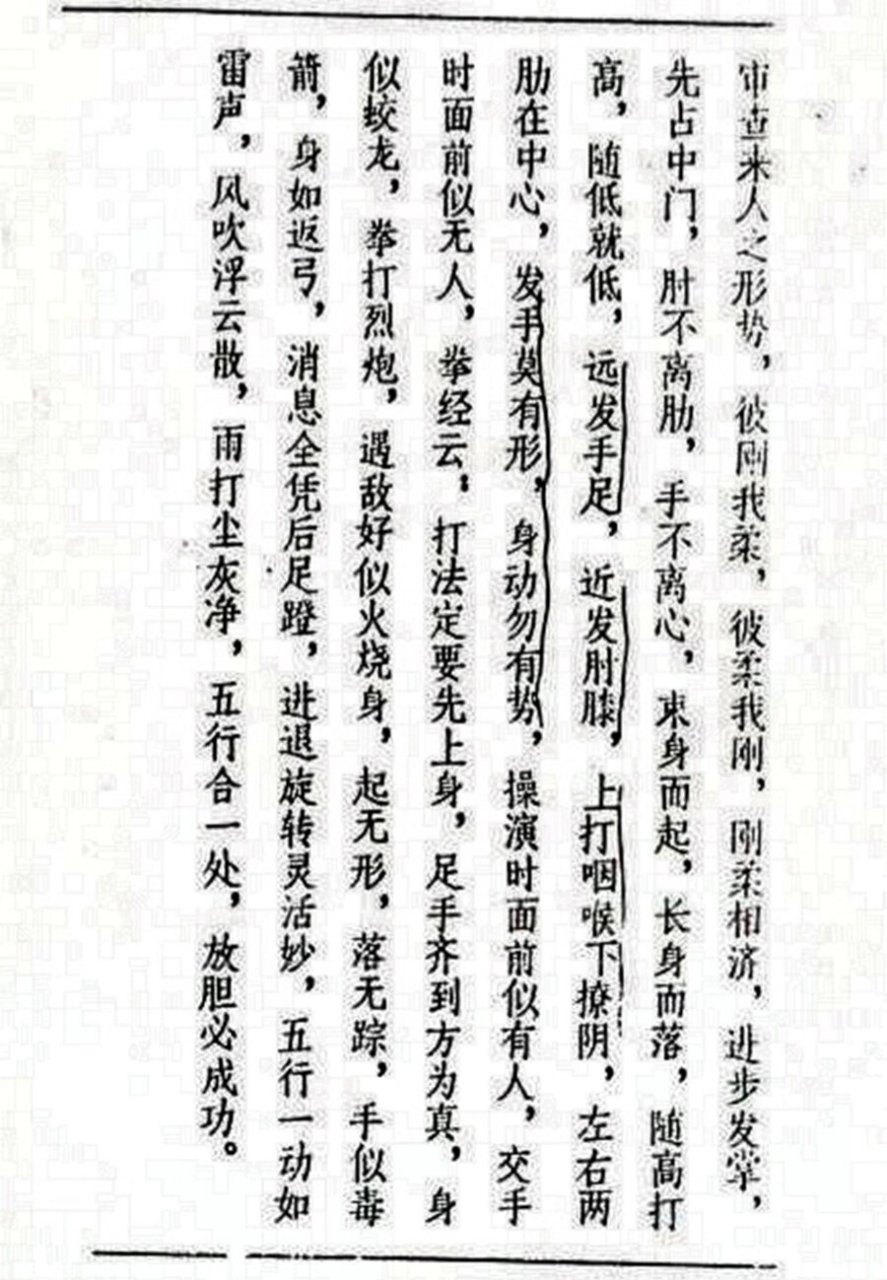 审查来人之形势，彼刚我柔，彼柔我刚，刚柔相济，进步发掌，
先占中门，肘不离肋，手不离心，束身而起，长身而落，随高打
高，随低就低，远发手足，近发肘膝，上打咽喉下撩阴，左右两
肋在中心，发手莫有形，身动勿有势，操演时面前似有人，交手
时面前似无人，拳经云：打法定要先上身，足手齐到方为真，身
似蛟龙，拳打烈炮，遇敌好似火烧身，起无形，落无踪，手似毒
箭，身如返弓，消息全凭后足蹬，进退旋转灵活妙，五行一动如
雷声，风吹浮云散，雨打尘灰净，五行合一处，放胆必成功。